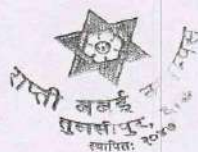 राप्ती बबई
तुलसीपुर,
स्थापितः २०४७